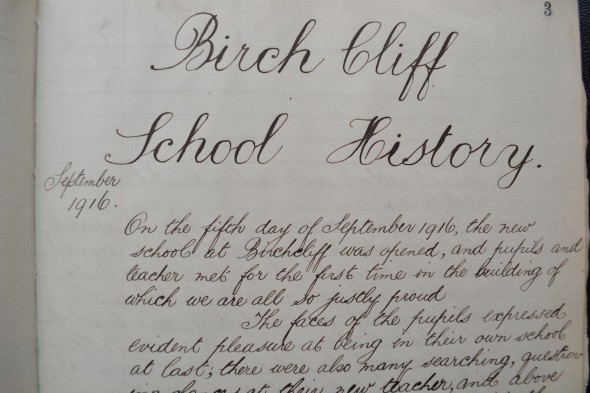 3
Birch Cliff
School History.
September
1916.
On the fifth day of September 1916, the new
school at Birchcliff was opened, and pupils and
teacher met for the first time in the building of
which we are all so justly proud
The faces of the pupils expressed
evident pleasure at being in their own school
at last; there were also many searching, question
ing glances at their new teacher, and above